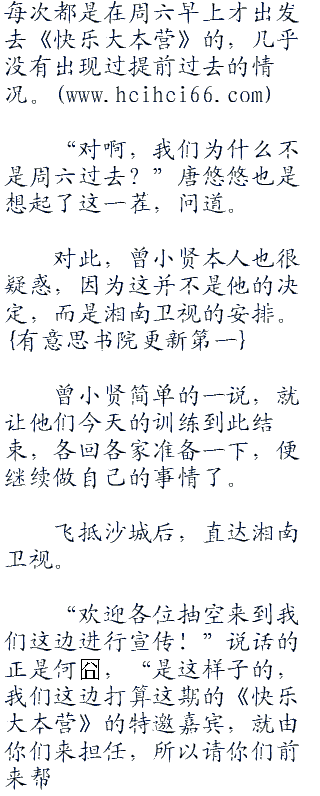 每次都是在周六早上才出发
去《快乐大本营》的，几乎
没有出现过提前过去的情
况。(www.hcihci66.com)
“对啊，我们为什么不
是周六过去？”唐悠悠也是
想起了这一茬，问道。
对此，曾小贤本人也很
疑惑，因为这并不是他的决
定，而是湘南卫视的安排。
{有意思书院更新第一}
曾小贤简单的一说，就
让他们今天的训练到此结
束，各回各家准备一下，便
继续做自己的事情了。
飞抵沙城后，直达湘南
卫视。
“欢迎各位抽空来到我
们这边进行宣传！”说话的
正是何囧，“是这样子的，
我们这边打算这期的《快乐
大本营》的特邀嘉宾，就由
你们来担任，所以请你们前
来帮